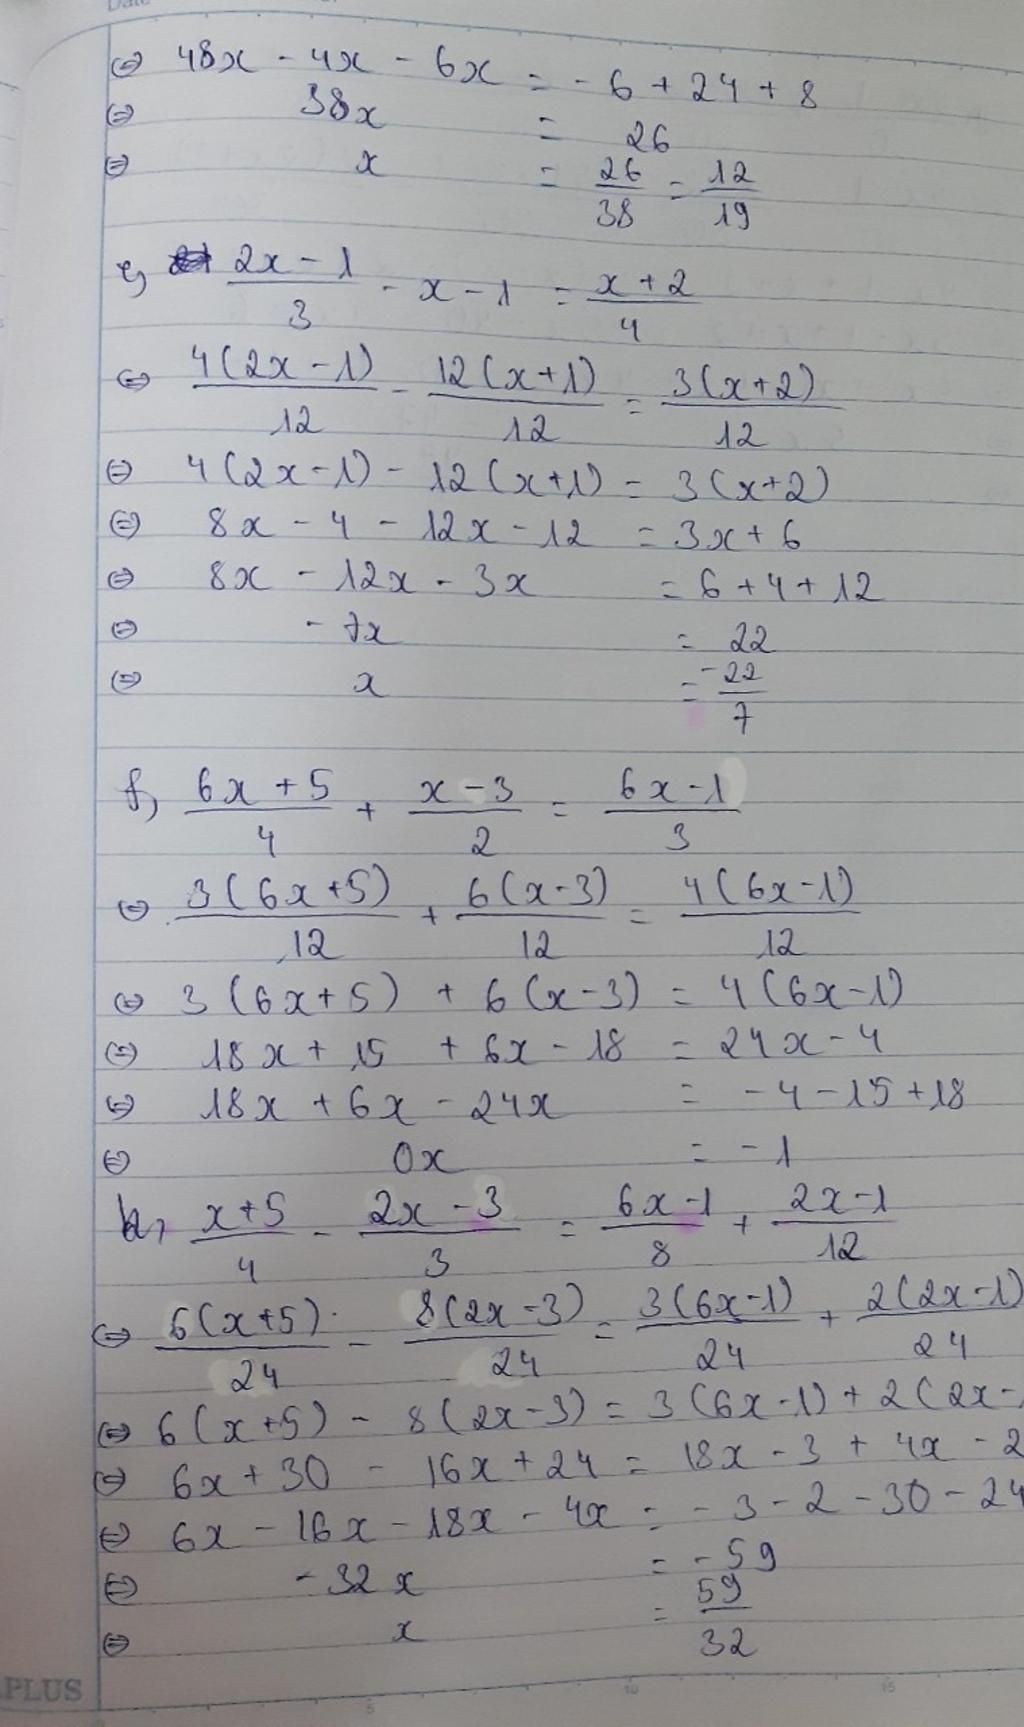 ⇔ 48x - 4x - 6x = -6 + 24 + 8
⇔ 38x = 26
⇔ x = 26/38 = 12/19
e, (2x - 1)/3 - x - 1 = (x + 2)/4
⇔ 4(2x - 1)/12 - 12(x + 1)/12 = 3(x + 2)/12
⇔ 4(2x - 1) - 12(x + 1) = 3(x + 2)
⇔ 8x - 4 - 12x - 12 = 3x + 6
⇔ 8x - 12x - 3x = 6 + 4 + 12
⇔ -7x = 22
⇔ x = -22/7
f, (6x + 5)/4 + (x - 3)/2 = (6x - 1)/3
⇔ 3(6x + 5)/12 + 6(x - 3)/12 = 4(6x - 1)/12
⇔ 3(6x + 5) + 6(x - 3) = 4(6x - 1)
⇔ 18x + 15 + 6x - 18 = 24x - 4
⇔ 18x + 6x - 24x = -4 - 15 + 18
⇔ 0x = -1
k, (x + 5)/4 - (2x - 3)/3 = (6x - 1)/8 + (2x - 1)/12
⇔ 6(x + 5)/24 - 8(2x - 3)/24 = 3(6x - 1)/24 + 2(2x - 1)/24
⇔ 6(x + 5) - 8(2x - 3) = 3(6x - 1) + 2(2x -
⇔ 6x + 30 - 16x + 24 = 18x - 3 + 4x - 2
⇔ 6x - 16x - 18x - 4x = -3 - 2 - 30 - 24
⇔ -32x = -59
⇔ x = 59/32
PLUS
5 10 15